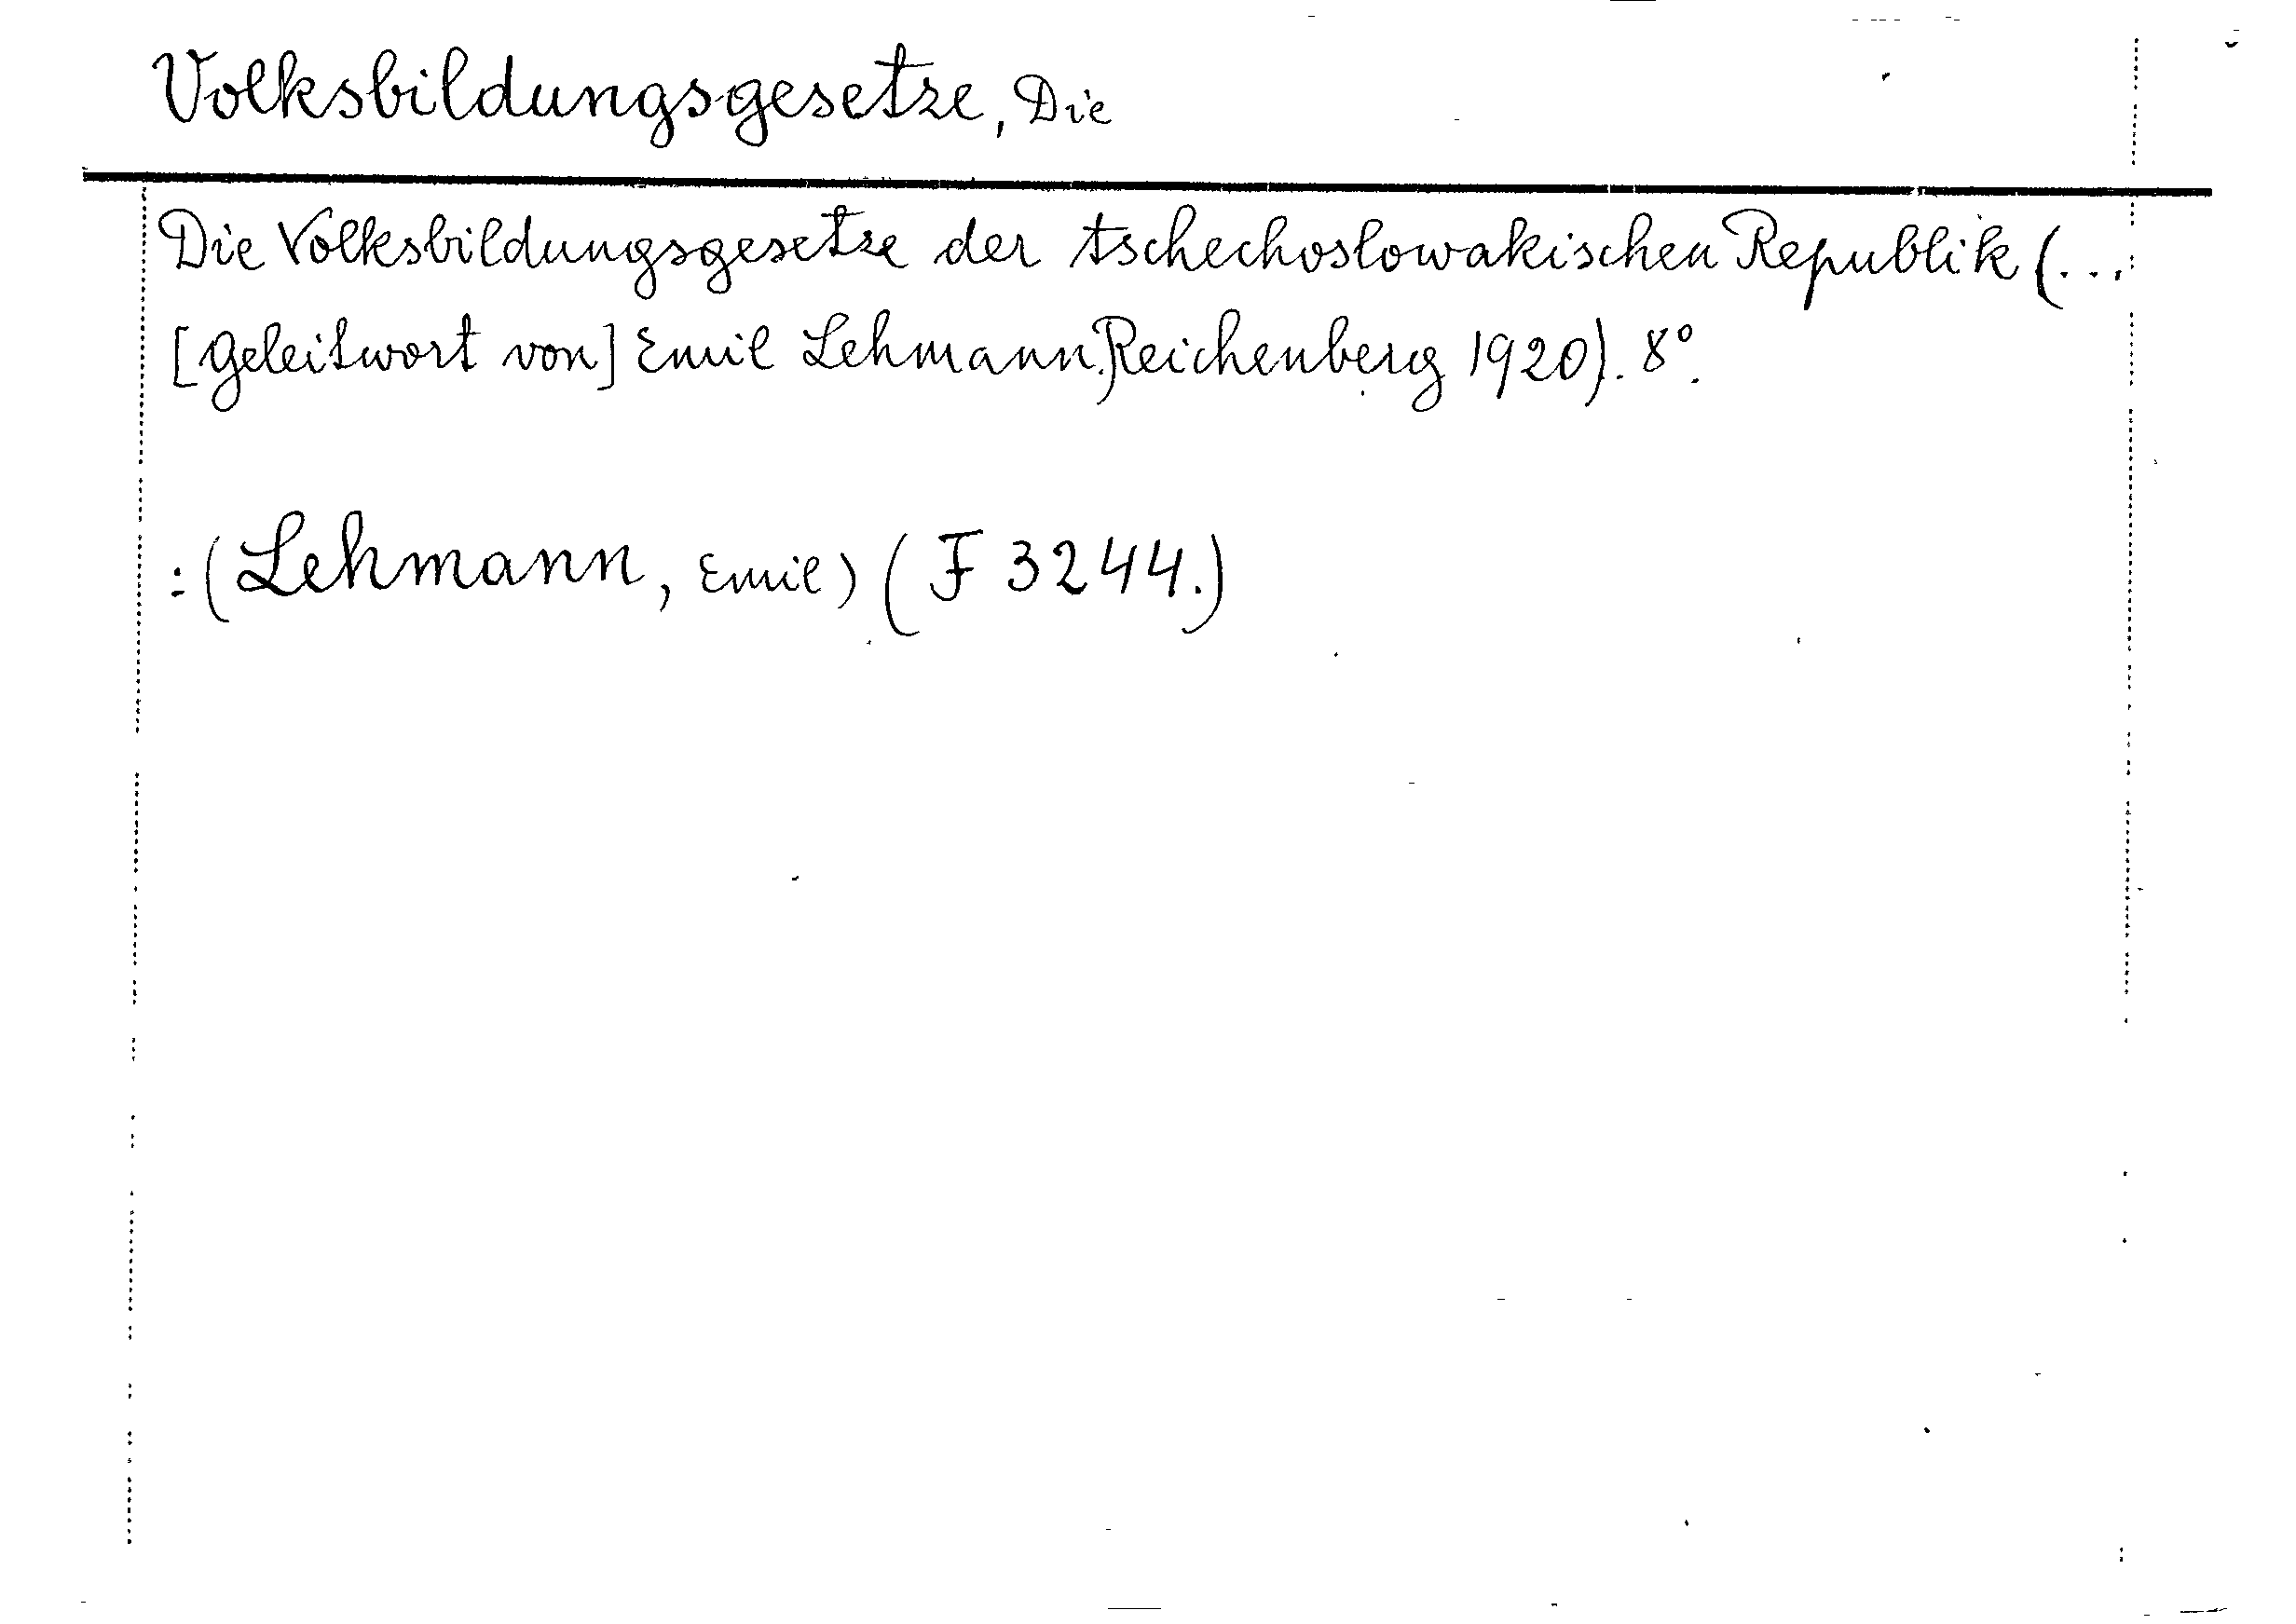 Volksbildungsgesetze, Die
Die Volksbildungsgesetze der tschechoslowakischen Republik (...
[Geleitwort von] Emil Lehmann. Reichenberg 1920). 8°.
: (Lehmann, Emil) (F 3244.)